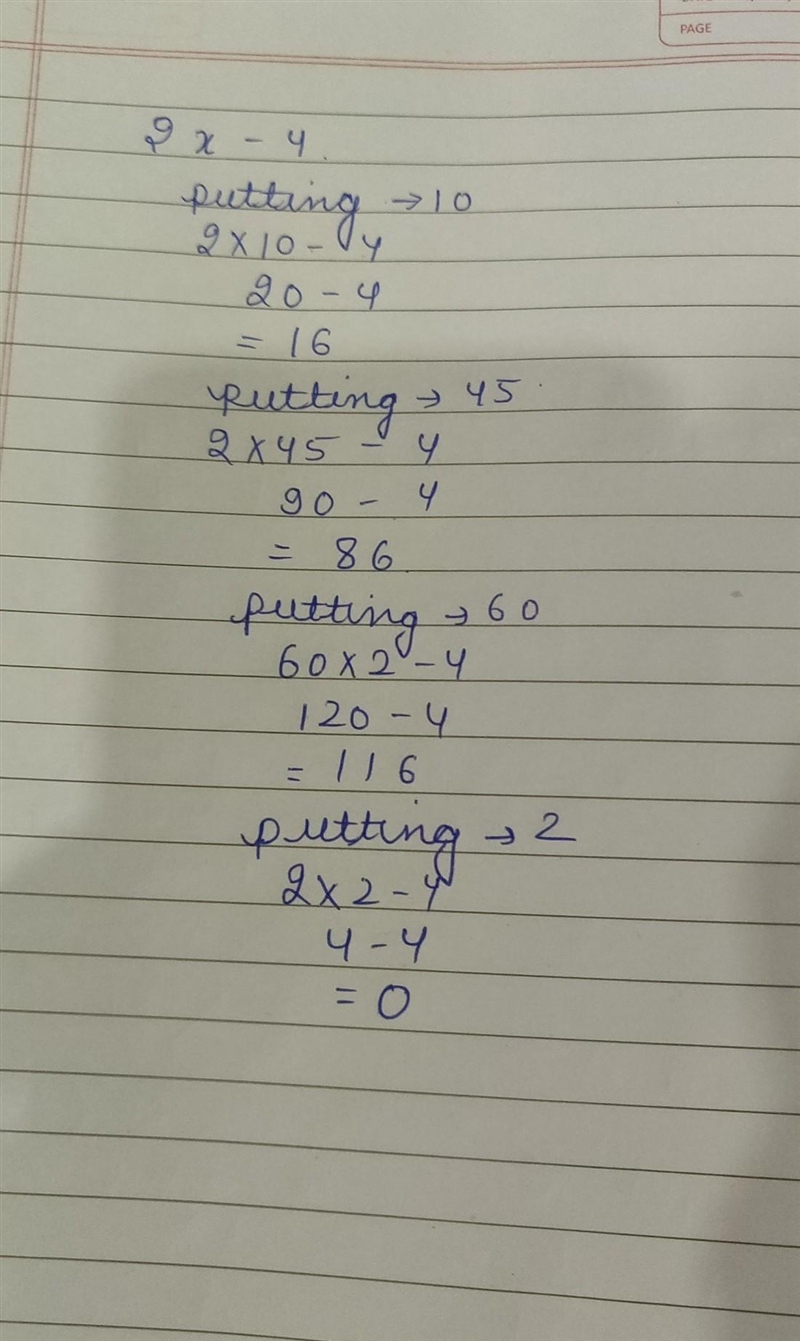 PAGE
2x - 4.
putting → 10
2×10 - 4
20 - 4
= 16
putting → 45
2×45 - 4
90 - 4
= 86
putting → 60
60×2 - 4
120 - 4
= 116
putting → 2
2×2 - 4
4 - 4
= 0